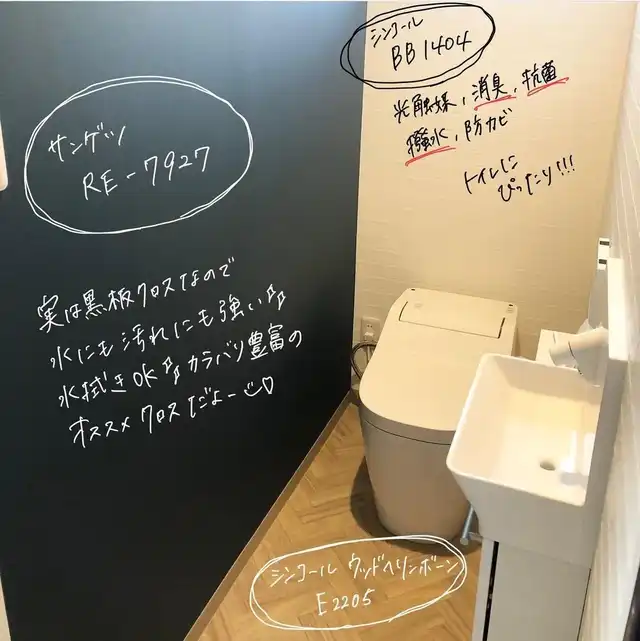 シンコール
BB1404
光触媒,消臭,抗菌
撥水,防カビ
トイレに
ぴったり!!!
サンゲツ
RE-7927
実は黒板クロスなので
水にも汚れにも強い
水拭きOK カラバリ豊富の
オススメクロスだよー
シンコール ウッドヘリンボーン
E2205